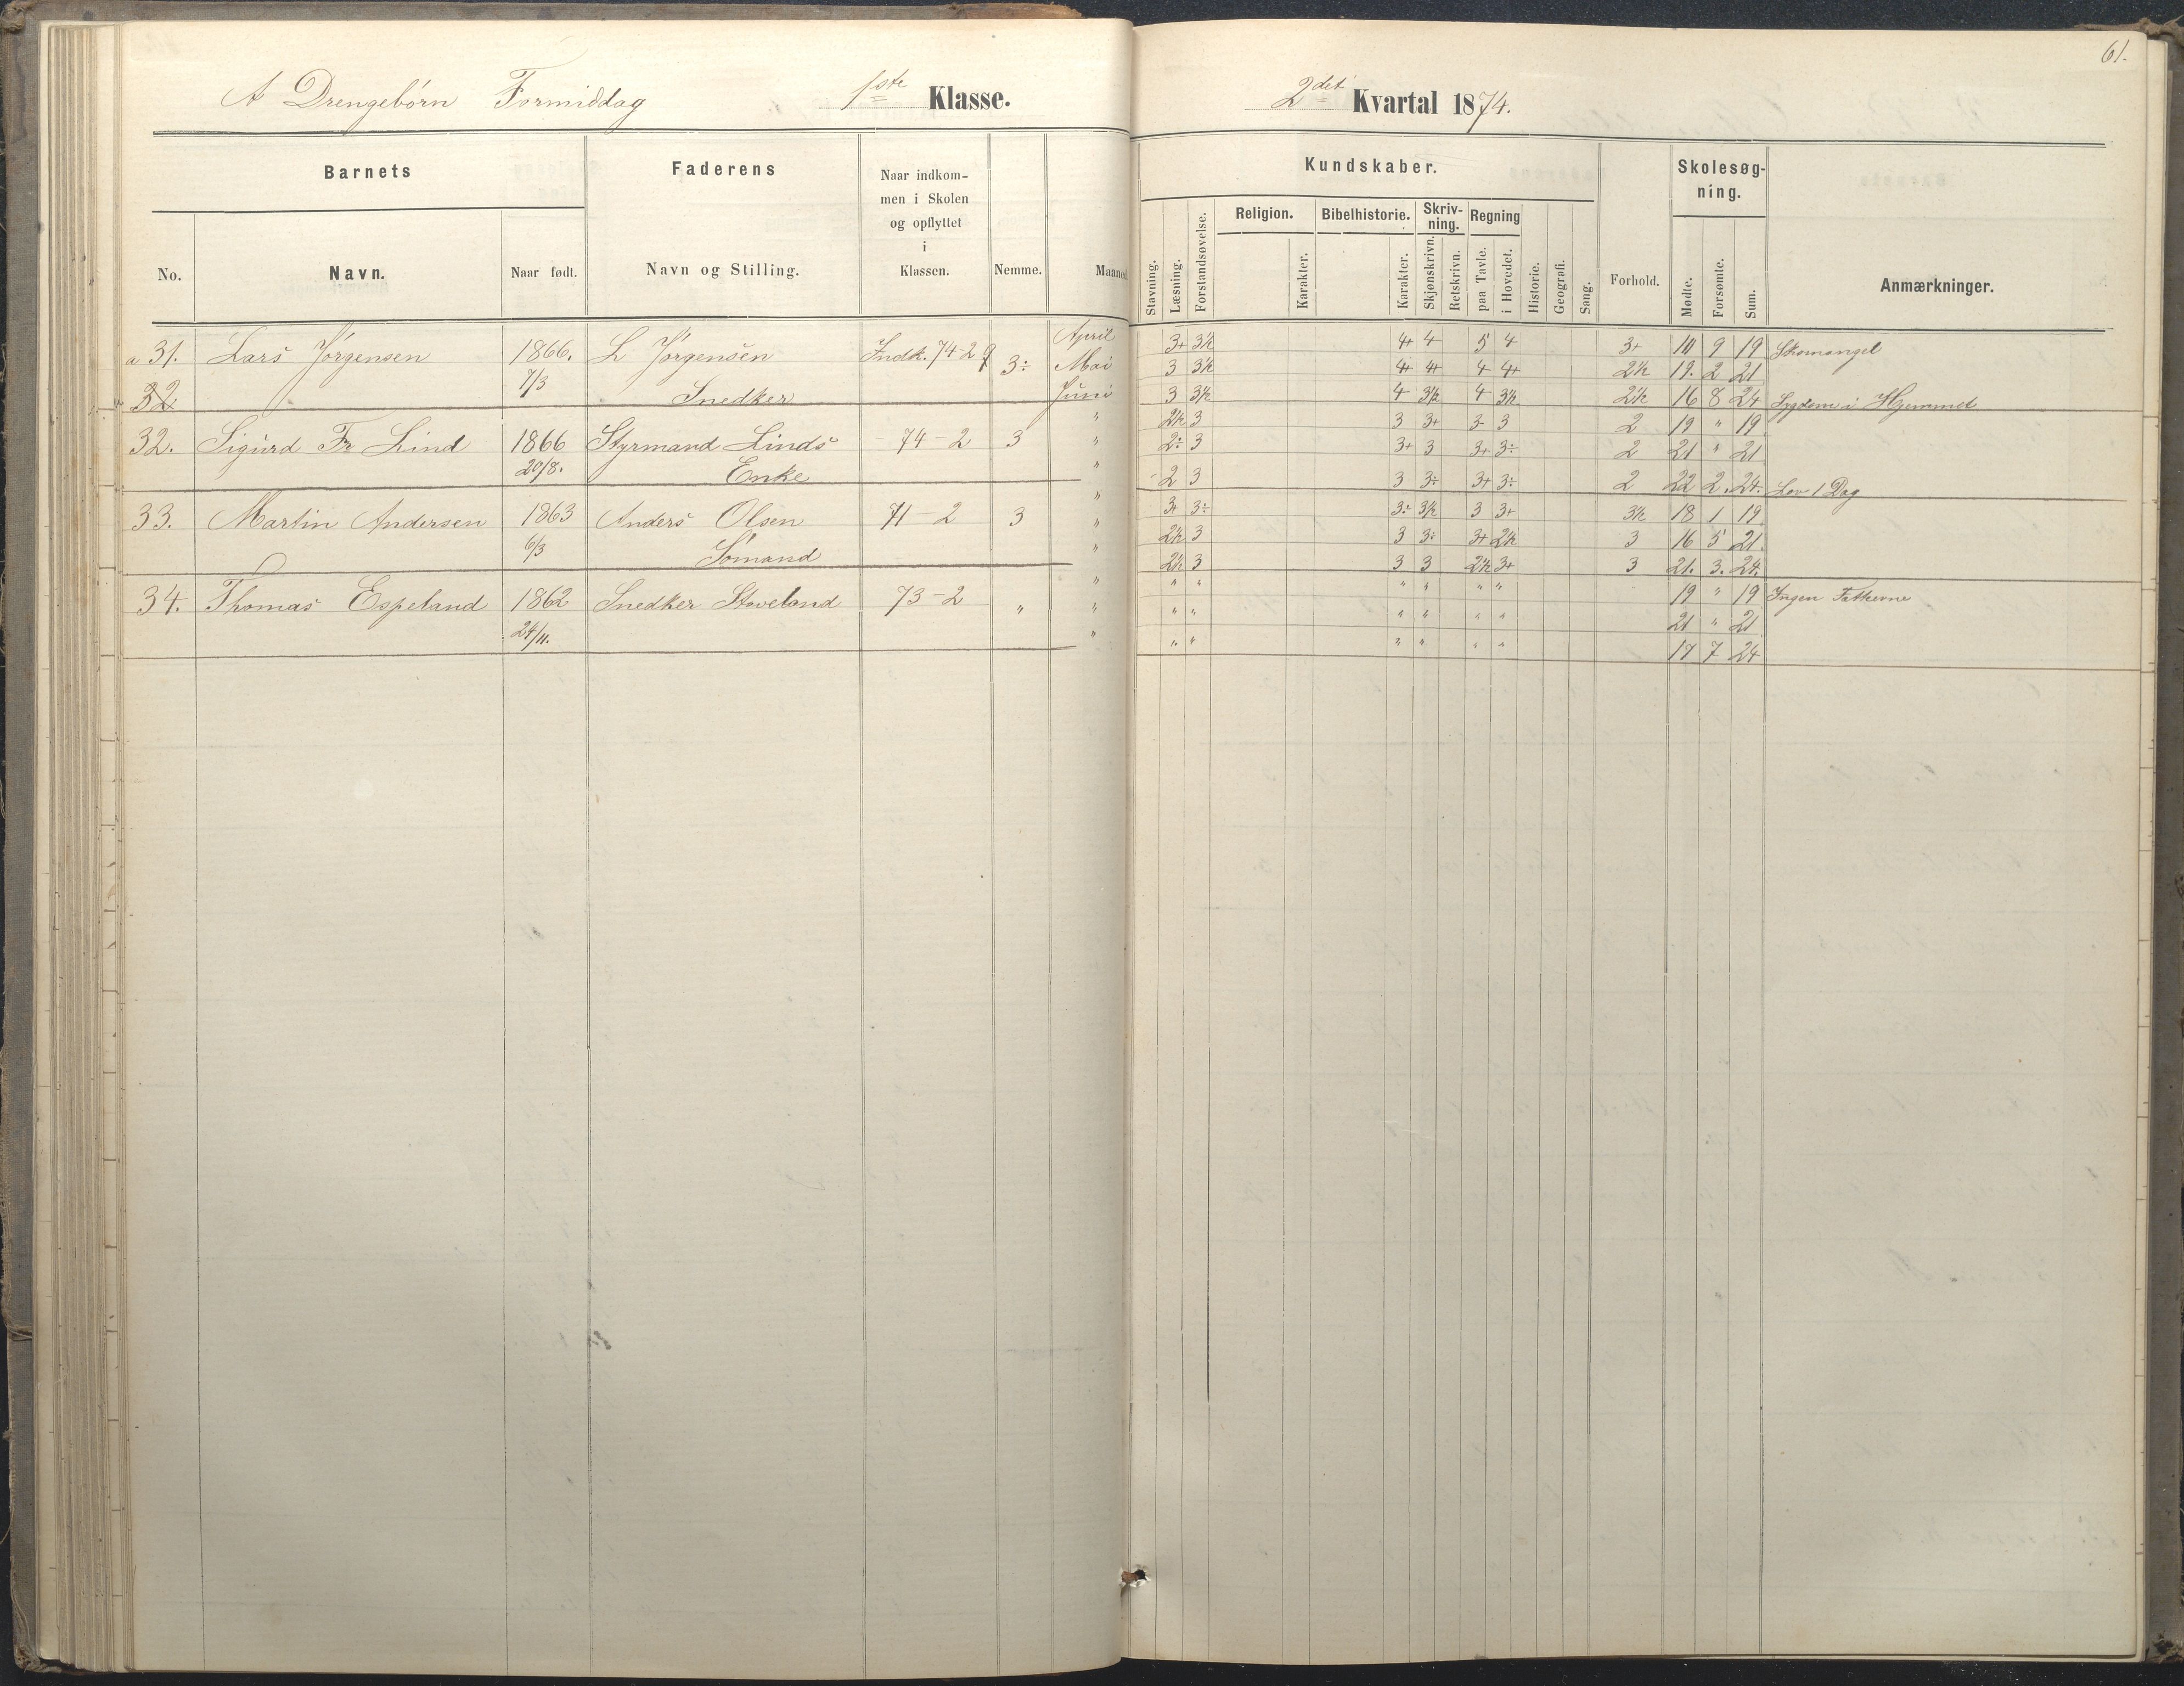 61.
A Drengebørn Formiddag 1ste Klasse. 2det Kvartal 1874.
Barnets Faderens Naar indkommen i Skolen og opflyttet i Klassen. Nemme. Maaned.
No. Navn. Naar født. Navn og Stilling.
Kundskaber. Forhold. Skolesøgning. Anmærkninger.
Stavning. Læsning. Forstandsøvelse. Religion. Karakter. Bibelhistorie. Karakter. Skrivning. Skjønskrivn. Retskrivn. Regning paa Tavle. i Hovedet. Historie. Geografi. Sang. Mødte. Forsømte. Sum.
a 31. Lars Jørgensen 1866. L Jørgensen Indk. 74-2 3÷ April 3+ 3½ 4+ 4 5 4 3+ 10 9 19 Skomangel
7/3 Mai 3 3½ 4+ 4+ 4 4+ 2½ 19. 2 21
32 Snedker Juni 3 3½ 4 3½ 4 3½ 2½ 16 8 24 Sygdom i Hjemmet
" 2½ 3 3 3+ 3- 3 2 19 " 19
32. Sigurd Fr Lind 1866 Styrmand Linds - 74-2 3 " 2÷ 3 3+ 3 3+ 3÷ 2 21 " 21
20/8. Enke " 2 3 3 3÷ 3+ 3÷ 2 22 2. 24. Lov 1 Dag
" 3+ 3÷ 3÷ 3½ 3 3+ 3½ 18 1 19
33. Martin Andersen 1863 Anders Olsen 71-2 3 " 2½ 3 3 3÷ 3+ 2½ 3 16 5 21.
6/3 Sømand " 2½ 3 3 3 2½ 3+ 3 21. 3. 24.
" " " " " " " 19 " 19 Ingen
34. Thomas Espeland 1862 Snedker Staveland 73-2 " " " " " " " " 21 " 21
24/11. " " " " " " " 17 7 24